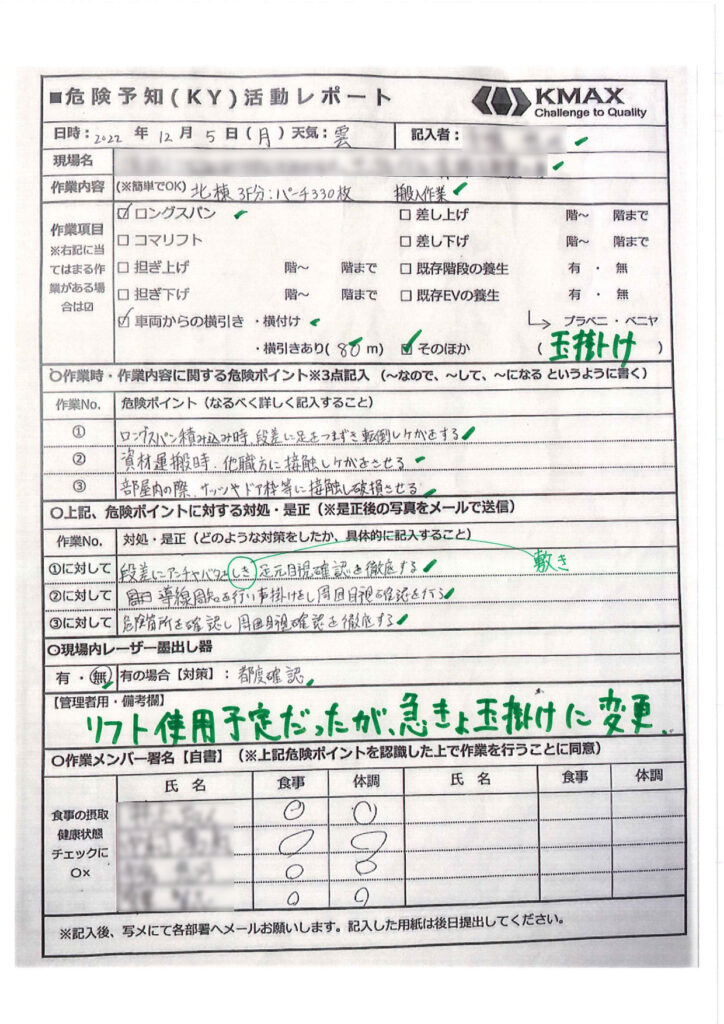 ■危険予知(KY)活動レポート
KMAX
Challenge to Quality
日時:2022 年 12 月 5 日(月)天気:雲
記入者:
現場名
作業内容 (※簡単でOK) 北棟 3F分:パーチ330枚 搬入作業
作業項目
※右記に当てはまる作業がある場合は☑
☑ ロングスパン
□ 差し上げ 階〜 階まで
□ コマリフト
□ 差し下げ 階〜 階まで
□ 担ぎ上げ 階〜 階まで
□ 既存階段の養生 有・無
□ 担ぎ下げ 階〜 階まで
□ 既存EVの養生 有・無
☑ 車両からの横引き ・横付け
プラベニ・ベニヤ
・横引きあり(80 m)
☑ そのほか (玉掛け)
〇作業時・作業内容に関する危険ポイント※3点記入 (〜なので、〜して、〜になる というように書く)
作業No. 危険ポイント(なるべく詳しく記入すること)
① ロングスパン積み込み時、段差に足をつまずき転倒しケガをする
② 資材運搬時、他職方に接触しケガをさせる
③ 部屋内の際、サッシやドア枠等に接触し破損させる
〇上記、危険ポイントに対する対処・是正(※是正後の写真をメールで送信)
作業No. 対処・是正(どのような対策をしたか、具体的に記入すること)
①に対して 段差にアンチャバタエしき 足元目視確認を徹底する
敷き
②に対して 導線周知を行い声掛けをし周囲目視確認を行う
③に対して 危険箇所を確認し周囲目視確認を徹底する
〇現場内レーザー墨出し器
有・無 有の場合【対策】:都度確認
【管理者用・備考欄】
リフト使用予定だったが、急きょ玉掛けに変更.
〇作業メンバー署名【自書】(※上記危険ポイントを認識した上で作業を行うことに同意)
氏 名 食事 体調 氏 名 食事 体調
食事の摂取
健康状態
チェックに
○×
○ ○
○ ○
○ ○
○ ○
※記入後、写メにて各部署へメールお願いします。記入した用紙は後日提出してください。